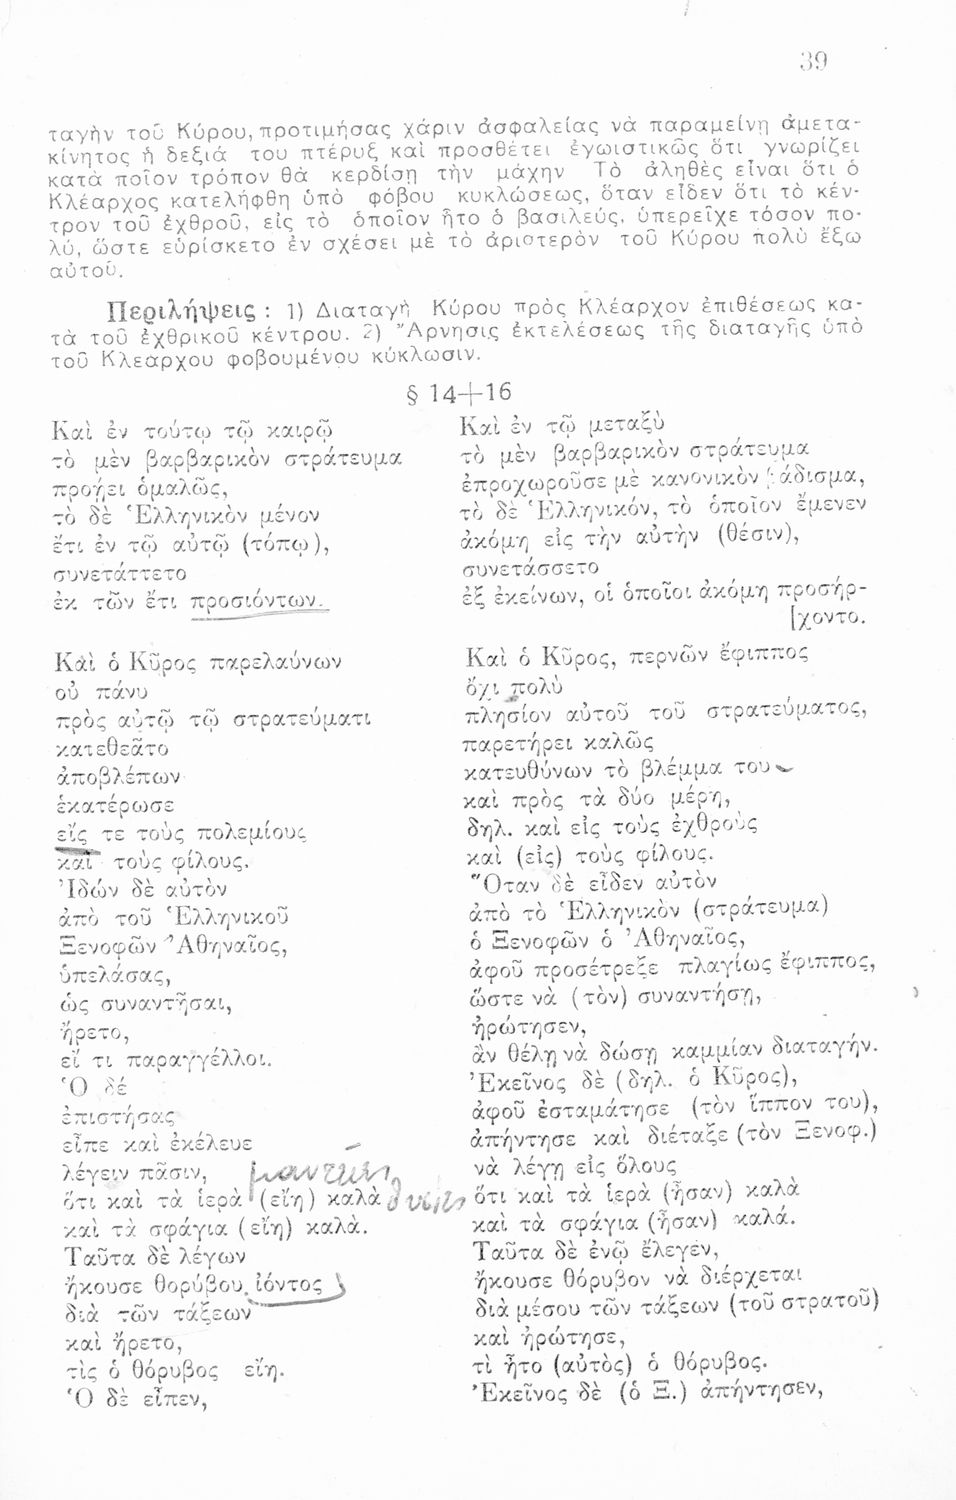 39
ταγὴν τοῦ Κύρου, προτιμήσας χάριν ἀσφαλείας νὰ παραμείνῃ ἀμετα-
κίνητος ἡ δεξιά του πτέρυξ καὶ προσθέτει ἐγωιστικῶς ὅτι γνωρίζει
κατὰ ποῖον τρόπον θὰ κερδίσῃ τὴν μάχην Τὸ ἀληθὲς εἶναι ὅτι ὁ
Κλέαρχος κατελήφθη ὑπὸ φόβου κυκλώσεως, ὅταν εἶδεν ὅτι τὸ κέν-
τρον τοῦ ἐχθροῦ, εἰς τὸ ὁποῖον ἦτο ὁ βασιλεύς, ὑπερεῖχε τόσον πο-
λύ, ὥστε εὑρίσκετο ἐν σχέσει μὲ τὸ ἀριστερὸν τοῦ Κύρου πολὺ ἔξω
αὐτοῦ.
Περιλήψεις : 1) Διαταγὴ Κύρου πρὸς Κλέαρχον ἐπιθέσεως κα-
τὰ τοῦ ἐχθρικοῦ κέντρου. 2) Ἄρνησις ἐκτελέσεως τῆς διαταγῆς ὑπὸ
τοῦ Κλεάρχου φοβουμένου κύκλωσιν.
§ 14+16
Καὶ ἐν τούτῳ τῷ καιρῷ
τὸ μὲν βαρβαρικὸν στράτευμα
προῄει ὁμαλῶς,
τὸ δὲ Ἑλληνικὸν μένον
ἔτι ἐν τῷ αὐτῷ (τόπῳ),
συνετάττετο
ἐκ τῶν ἔτι προσιόντων.
Καὶ ὁ Κῦρος παρελαύνων
οὐ πάνυ
πρὸς αὐτῷ τῷ στρατεύματι
κατεθεᾶτο
ἀποβλέπων
ἑκατέρωσε
εἴς τε τοὺς πολεμίους
καὶ τοὺς φίλους.
Ἰδὼν δὲ αὐτὸν
ἀπὸ τοῦ Ἑλληνικοῦ
Ξενοφῶν Ἀθηναῖος,
ὑπελάσας,
ὡς συναντῆσαι,
ἤρετο,
εἴ τι παραγγέλλοι.
Ὁ δὲ
ἐπιστήσας
εἶπε καὶ ἐκέλευε
λέγειν πᾶσιν,
ὅτι καὶ τὰ ἱερὰ (εἴη) καλὰ
καὶ τὰ σφάγια (εἴη) καλὰ.
Ταῦτα δὲ λέγων
ἤκουσε θορύβου ἰόντος
διὰ τῶν τάξεων
καὶ ἤρετο,
τὶς ὁ θόρυβος εἴη.
Ὁ δὲ εἶπεν,
Καὶ ἐν τῷ μεταξὺ
τὸ μὲν βαρβαρικὸν στράτευμα
ἐπροχωροῦσε μὲ κανονικὸν βάδισμα,
τὸ δὲ Ἑλληνικόν, τὸ ὁποῖον ἔμενεν
ἀκόμη εἰς τὴν αὐτὴν (θέσιν),
συνετάσσετο
ἐξ ἐκείνων, οἱ ὁποῖοι ἀκόμη προσήρ-
[χοντο.
Καὶ ὁ Κῦρος, περνῶν ἔφιππος
ὄχι πολὺ
πλησίον αὐτοῦ τοῦ στρατεύματος,
παρετήρει καλῶς
κατευθύνων τὸ βλέμμα του
καὶ πρὸς τὰ δύο μέρη,
δηλ. καὶ εἰς τοὺς ἐχθροὺς
καὶ (εἰς) τοὺς φίλους.
Ὅταν δὲ εἶδεν αὐτὸν
ἀπὸ τὸ Ἑλληνικὸν (στράτευμα)
ὁ Ξενοφῶν ὁ Ἀθηναῖος,
ἀφοῦ προσέτρεξε πλαγίως ἔφιππος,
ὥστε νὰ (τὸν) συναντήσῃ,
ἠρώτησεν,
ἂν θέλῃ νὰ δώσῃ καμμίαν διαταγήν.
Ἐκεῖνος δὲ (δηλ. ὁ Κῦρος),
ἀφοῦ ἐσταμάτησε (τὸν ἵππον του),
ἀπήντησε καὶ διέταξε (τὸν Ξενοφ.)
νὰ λέγῃ εἰς ὅλους
ὅτι καὶ τὰ ἱερὰ (ἦσαν) καλὰ
καὶ τὰ σφάγια (ἦσαν) καλά.
Ταῦτα δὲ ἐνῷ ἔλεγεν,
ἤκουσε θόρυβον νὰ διέρχεται
διὰ μέσου τῶν τάξεων (τοῦ στρατοῦ)
καὶ ἠρώτησε,
τὶ ἦτο (αὐτὸς) ὁ θόρυβος.
Ἐκεῖνος δὲ (ὁ Ξ.) ἀπήντησεν,